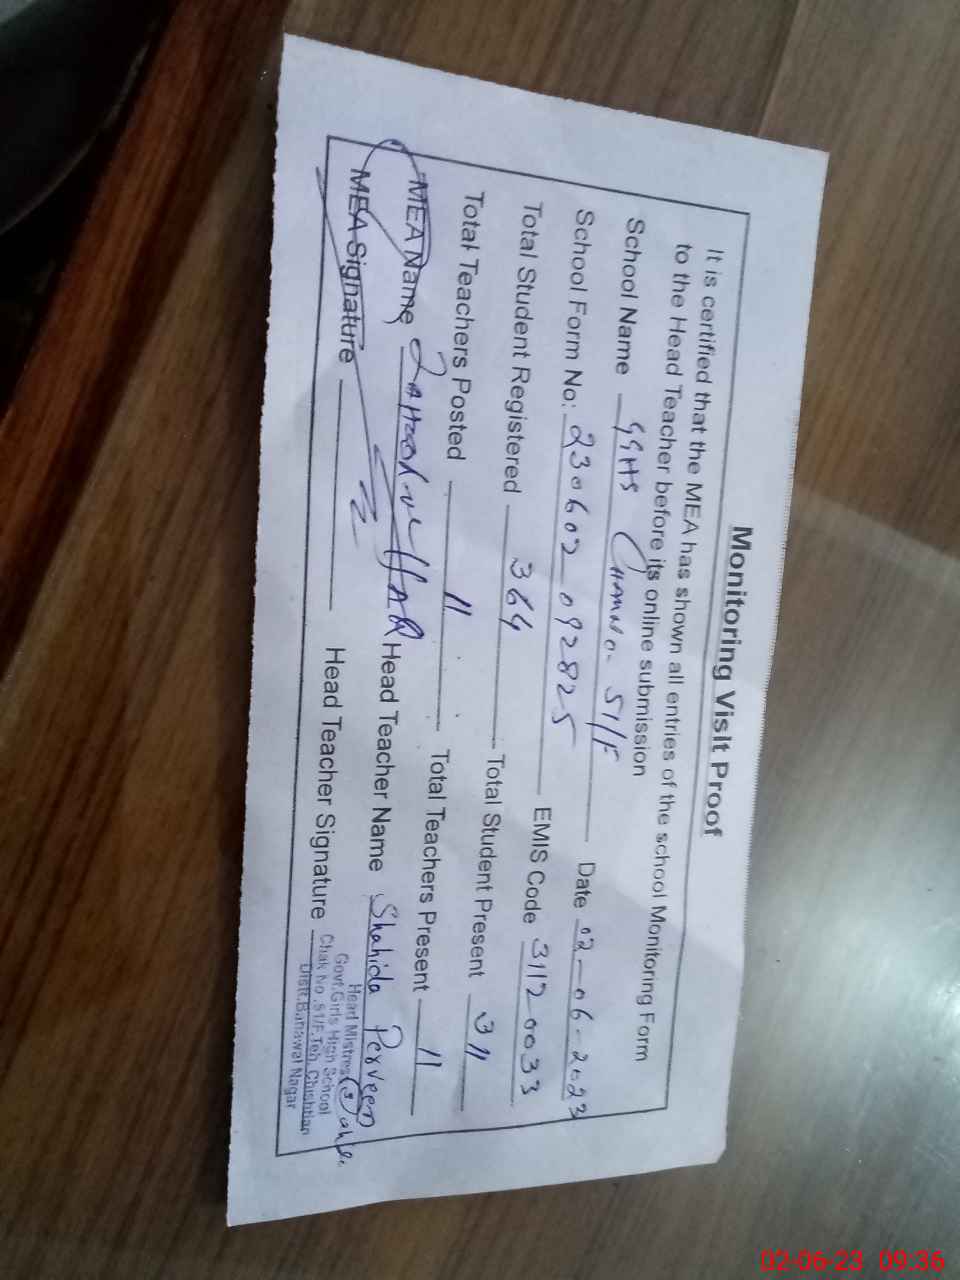 Monitoring Visit Proof
It is certified that the MEA has shown all entries of the school Monitoring Form
to the Head Teacher before its online submission
School Name GGHS CHAK No- 51/F Date 02-06-2023
School Form No: 230602 092825 EMIS Code 31120033
Total Student Registered 364 Total Student Present 311
Total Teachers Posted 11 Total Teachers Present 11
MEA Name Head Teacher Name Shahida Perveen
MEA Signature Head Teacher Signature
Head Mistress
Govt.Girls High School
Chak No.51/F.Teh.Chishtian
Distt.Bahawal Nagar
02-06-23 09:36